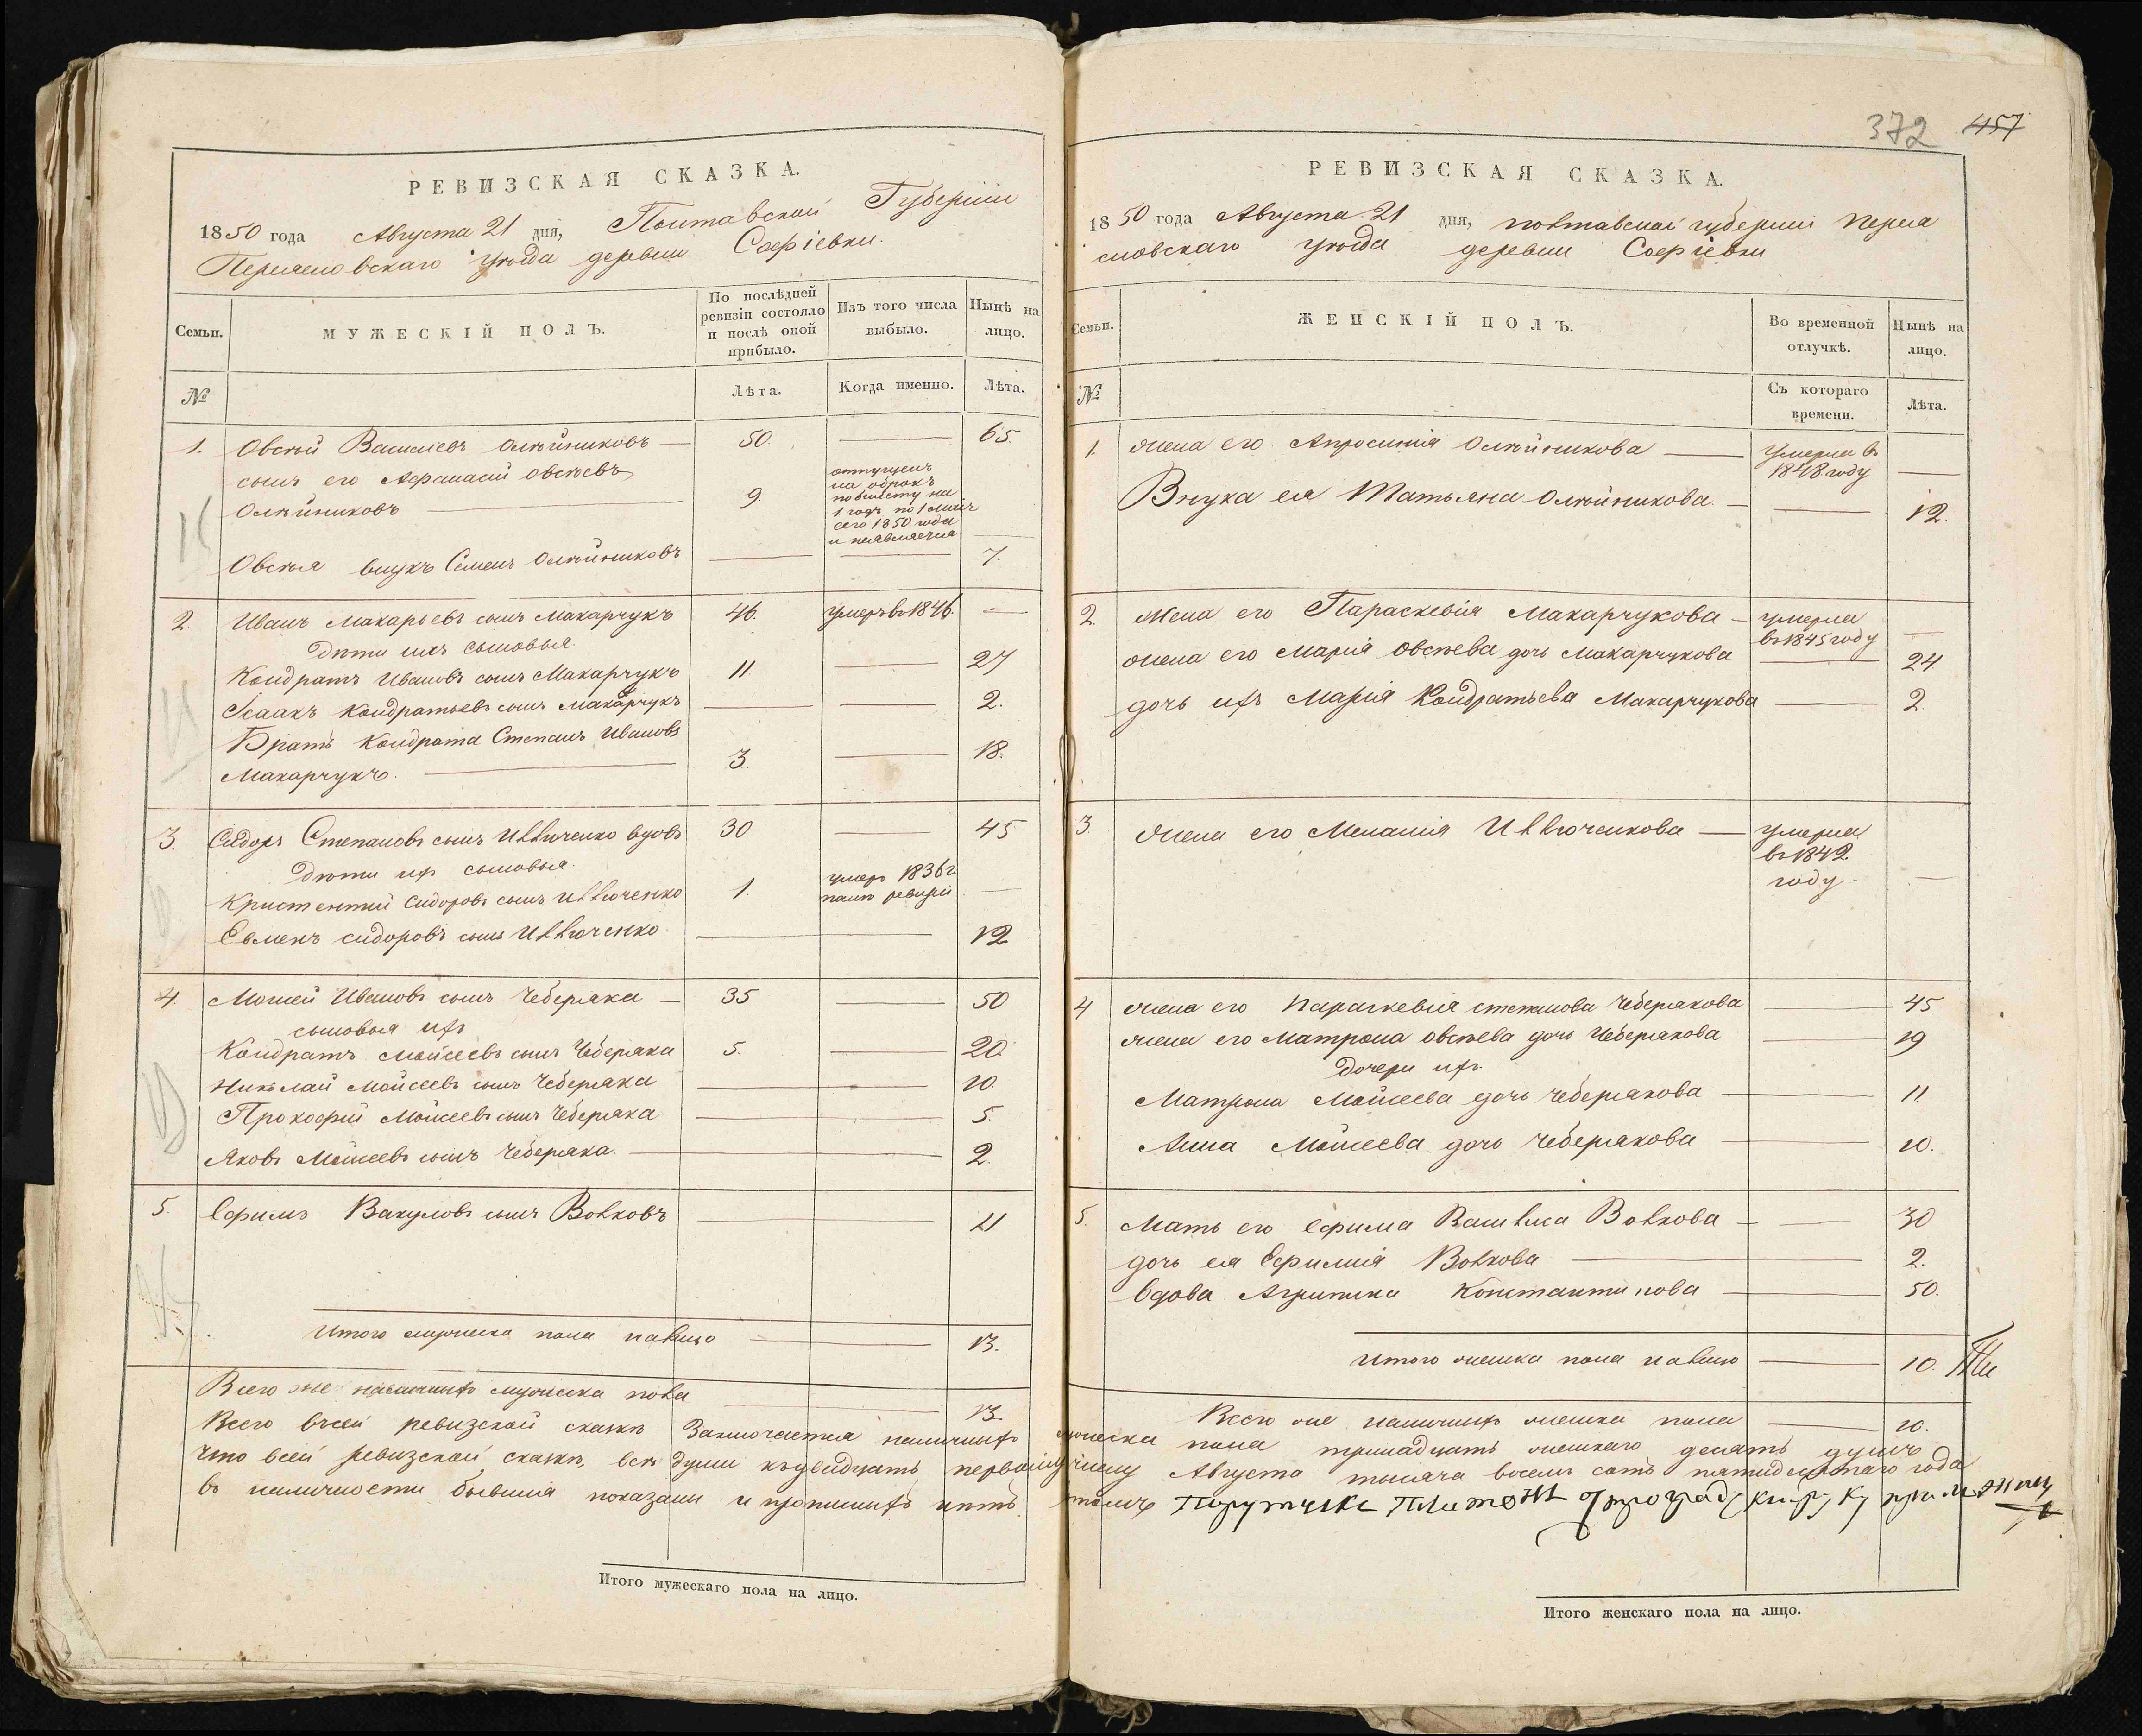 РЕВИЗСКАЯ СКАЗКА.
1850 года Августа 21 дня, Полтавской Губерніи
Переяславскаго уѣзда деревни Софіевки.
Семьи.
МУЖЕСКІЙ ПОЛЪ.
По послѣдней ревизіи состояло и послѣ оной прибыло.
Изъ того числа выбыло.
Нынѣ на лицо.
№
Лѣта.
Когда именно.
Лѣта.
1. Овсѣй Васильевъ Олѣйниковъ — 50. — 65.
сынъ его Афанасій Овсѣевъ
Олѣйниковъ — 9.
отпущенъ
на оброкъ
по билету на
1 годъ по 1 Маія
сего 1850 года
и неявляется —
Овсѣя внукъ Семенъ Олѣйниковъ — — 7.
2. Иванъ Макарьевъ сынъ Макарчукъ 46. умеръ въ 1846. —
Дѣти ихъ сыновья.
Кондратъ Ивановъ сынъ Макарчукъ 11. — 27
Ісаакъ Кондратьевъ сынъ Макарчукъ — — 2.
Братъ Кондрата Степанъ Ивановъ
Макарчукъ. — 3. — 18.
3. Сидоръ Степановъ сынъ Илльюченко вдовъ 30 — 45
Дѣти ихъ сыновья.
Кристентій Сидоровъ сынъ Илльюченко 1. умеръ 1836 г
ревизіи —
Евменъ Сидоровъ сынъ Илльюченко — — 12
4. Моисей Ивановъ сынъ Чеберяка — 35 — 50
сыновья ихъ
Кондратъ Моисеевъ сынъ Чеберяка 5. — 20.
Николай Моисеевъ сынъ Чеберяка — — 10.
Прокофій Моисеевъ сынъ Чеберяка — — 5.
Яковъ Моисеевъ сынъ Чеберяка. — — 2.
5. Ефимъ Вакуловъ сынъ Вовковъ — — 11
Итого мужеска пола налицо — 13.
Всего же наличныхъ мужеска пола — 13.
Итого мужескаго пола на лицо.
372 457
РЕВИЗСКАЯ СКАЗКА.
1850 года Августа 21 дня, Полтавской губерніи Перея
словскаго уѣзда деревни Софіевки
Семьи.
ЖЕНСКІЙ ПОЛЪ.
Во временной отлучкѣ.
Нынѣ на лицо.
№
Съ котораго времени.
Лѣта.
1. жена его Апросинія Олѣйникова — умерла въ
1848 году —
Внука ея Татьяна Олѣйникова. — — 12.
2. Жена его Параскевія Макарчукова — умерла
въ 1845 году —
жена его Марія Овсѣева дочь Макарчукова — 24
дочь ихъ Марія Кондратьева Макарчукова — 2.
3. жена его Меланія Илльюченкова — умерла
въ 1842
году. —
4 жена его Параскевія Степанова Чеберякова — 45
жена его Матрона Овсѣева дочь Чеберякова — 19
Дочери ихъ.
Матрона Моисеева дочь Чеберякова — 11.
Анна Моисеева дочь Чеберякова — 10.
5. Мать его Ефима Василиса Вовкова — — 30
дочь ея Ефимія Вовкова — 2.
Вдова Агрипина Константинова — 50.
Итого женска пола налицо — 10.
Всего же наличныхъ женска пола — 10.
Всего всей ревизской сказкѣ Заключается наличныхъ мужеска пола тринадцать женскаго десять душъ
что всей ревизской сказкѣ, всѣ души къ двадцать первому числу Августа тысяча восемь сотъ пятидесятаго года
въ наличности бывшія показаны и прописныхъ нѣтъ Поручикъ Платонъ руку приложилъ
Итого женскаго пола на лицо.